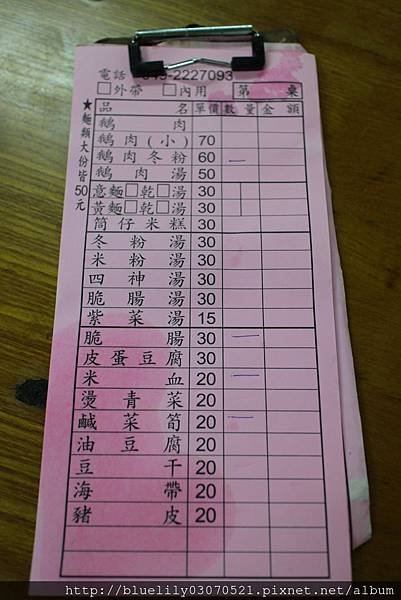 電話 049-2227093
□外帶 □內用 第 桌
品名 單價 數量 金額
鵝肉
鵝肉(小) 70
鵝肉冬粉 60 一
鵝肉湯 50
意麵□乾□湯 30
黃麵□乾□湯 30
筒仔米糕 30
冬粉湯 30
米粉湯 30
四神湯 30
脆腸湯 30
紫菜湯 15
脆腸 30 一
皮蛋豆腐 30
米血 20 一
燙青菜 20
鹹菜筍 20 一
油豆腐 20
豆干 20
海帶 20
豬皮 20
★麵類大份皆50元
http://bluelily03070521.pixnet.net/album